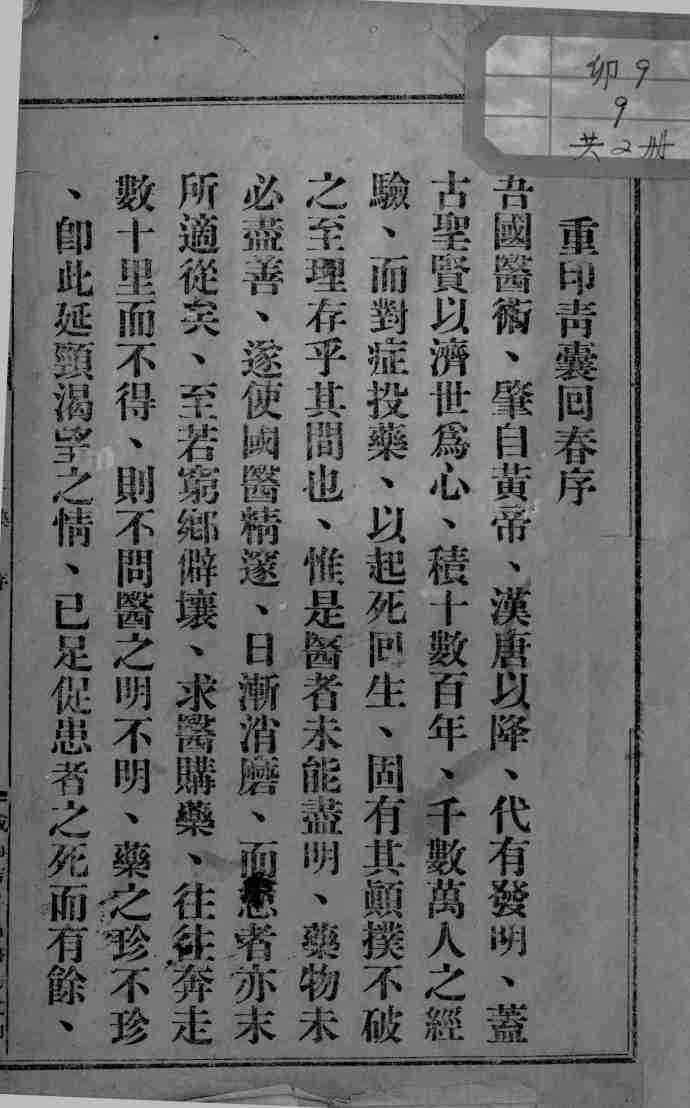 卯9
9
共2册
重印青囊回春序
吾國醫術、肇自黃帝、漢唐以降、代有發明、蓋
古聖賢以濟世爲心、積十數百年、千數萬人之經
驗、而對症投藥、以起死回生、固有其顚撲不破
之至理存乎其間也、惟是醫者未能盡明、藥物未
必盡善、遂使國醫精邃、日漸消磨、而患者亦末
所適從矣、至若窮鄕僻壤、求醫購藥、往往奔走
數十里而不得、則不問醫之明不明、藥之珍不珍
、卽此延頸渴望之情、已足促患者之死而有餘、